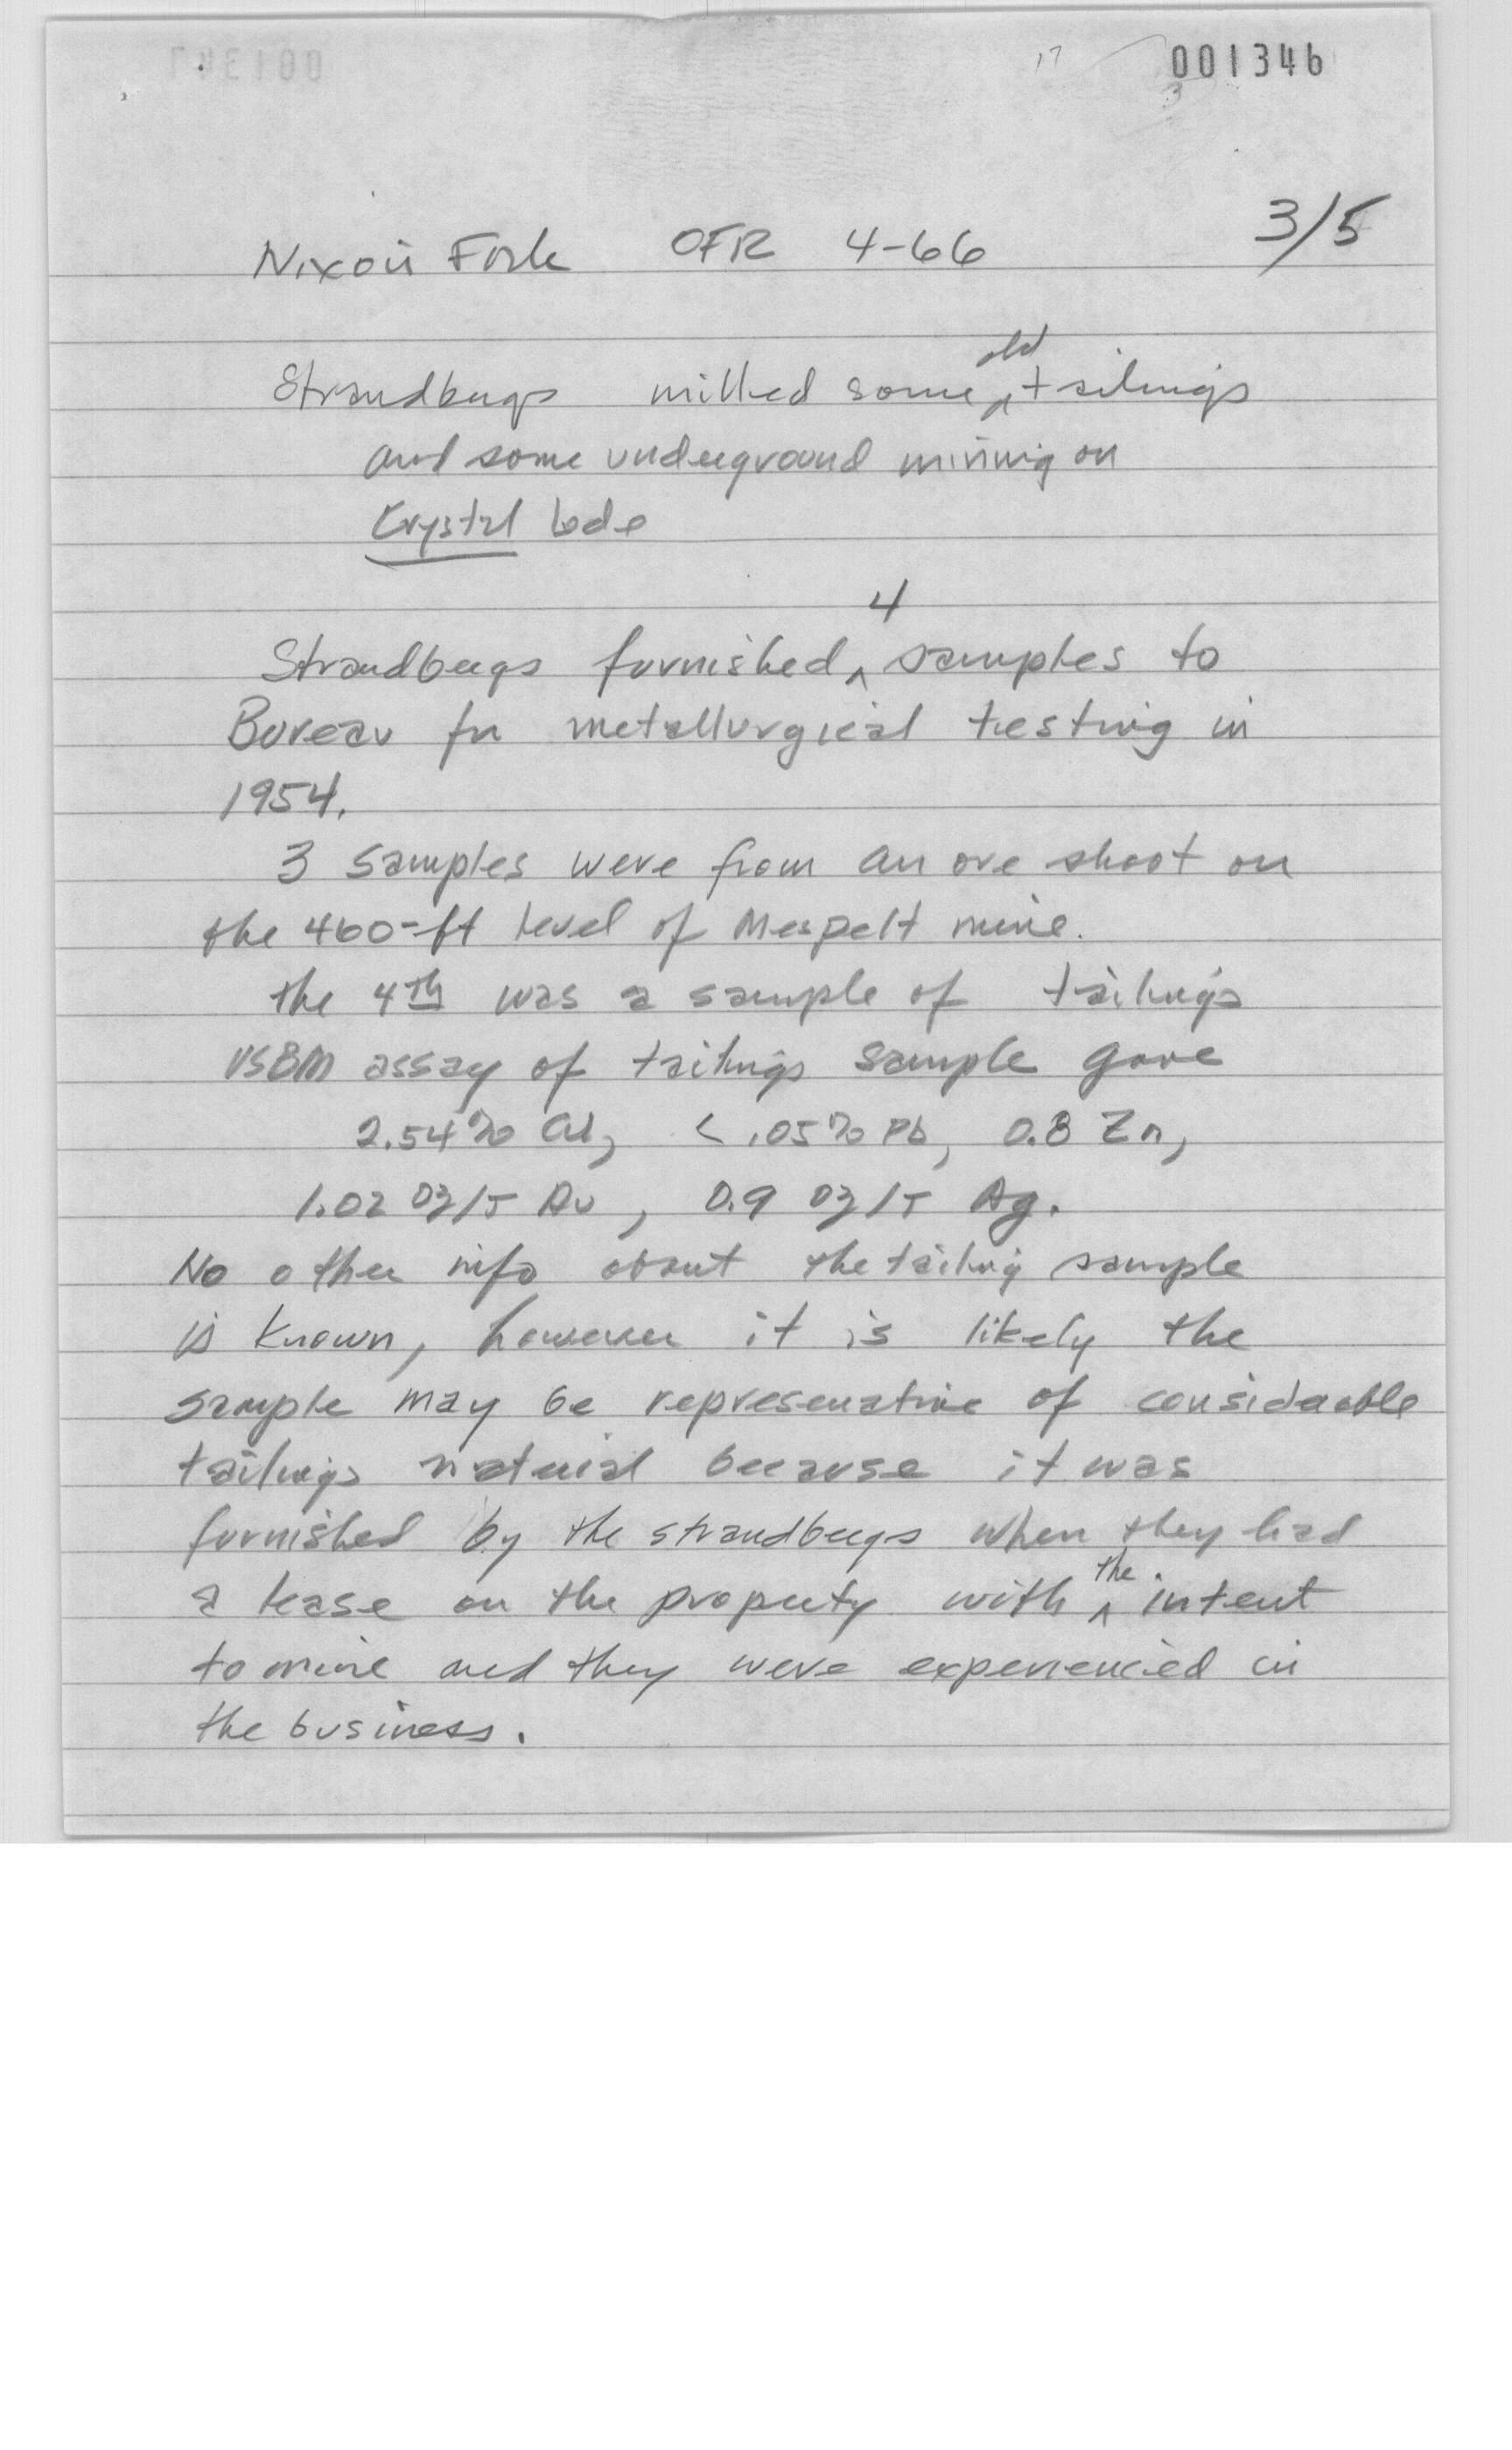 001346
3/5
Nixon Fork OFR 4-66
Strandbergs milled some old tailings
and some underground mining on
Crystal lode
Strandbergs furnished 4 samples to
Bureau for metallurgical testing in
1954.
3 samples were from an ore shoot on
the 460-ft level of Mespelt mine.
the 4th was a sample of tailings
USBM assay of tailings sample gave
2.54% Cu, < .05% Pb, 0.8 Zn,
1.02 oz/T Au, 0.9 oz/T Ag.
No other info about the tailing sample
is known, however it is likely the
sample may be represenative of considerable
tailings material because it was
furnished by the strandbergs when they had
a lease on the property with the intent
to mine and they were experienced in
the business.